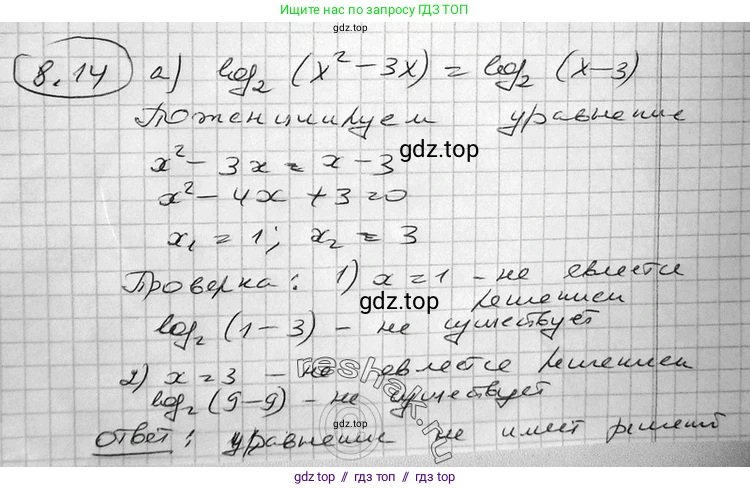 Ищите нас по запросу ГДЗ ТОП
gdz.top
8.14 а) log₂ (x² – 3x) = log₂ (x–3)
Потенциируем уравнение
x² – 3x = x – 3
gdz.top
x² – 4x + 3 = 0
x₁ = 1; x₂ = 3
Проверка: 1) x = 1 – не явлется
решением
gdz.top
log₂ (1–3) – не существует
2) x = 3 – не явлется решением
log₂ (9–9) – не существует
reshak.ru
ответ: уравнение не имеет решений
gdz top // гдз топ // gdz.top